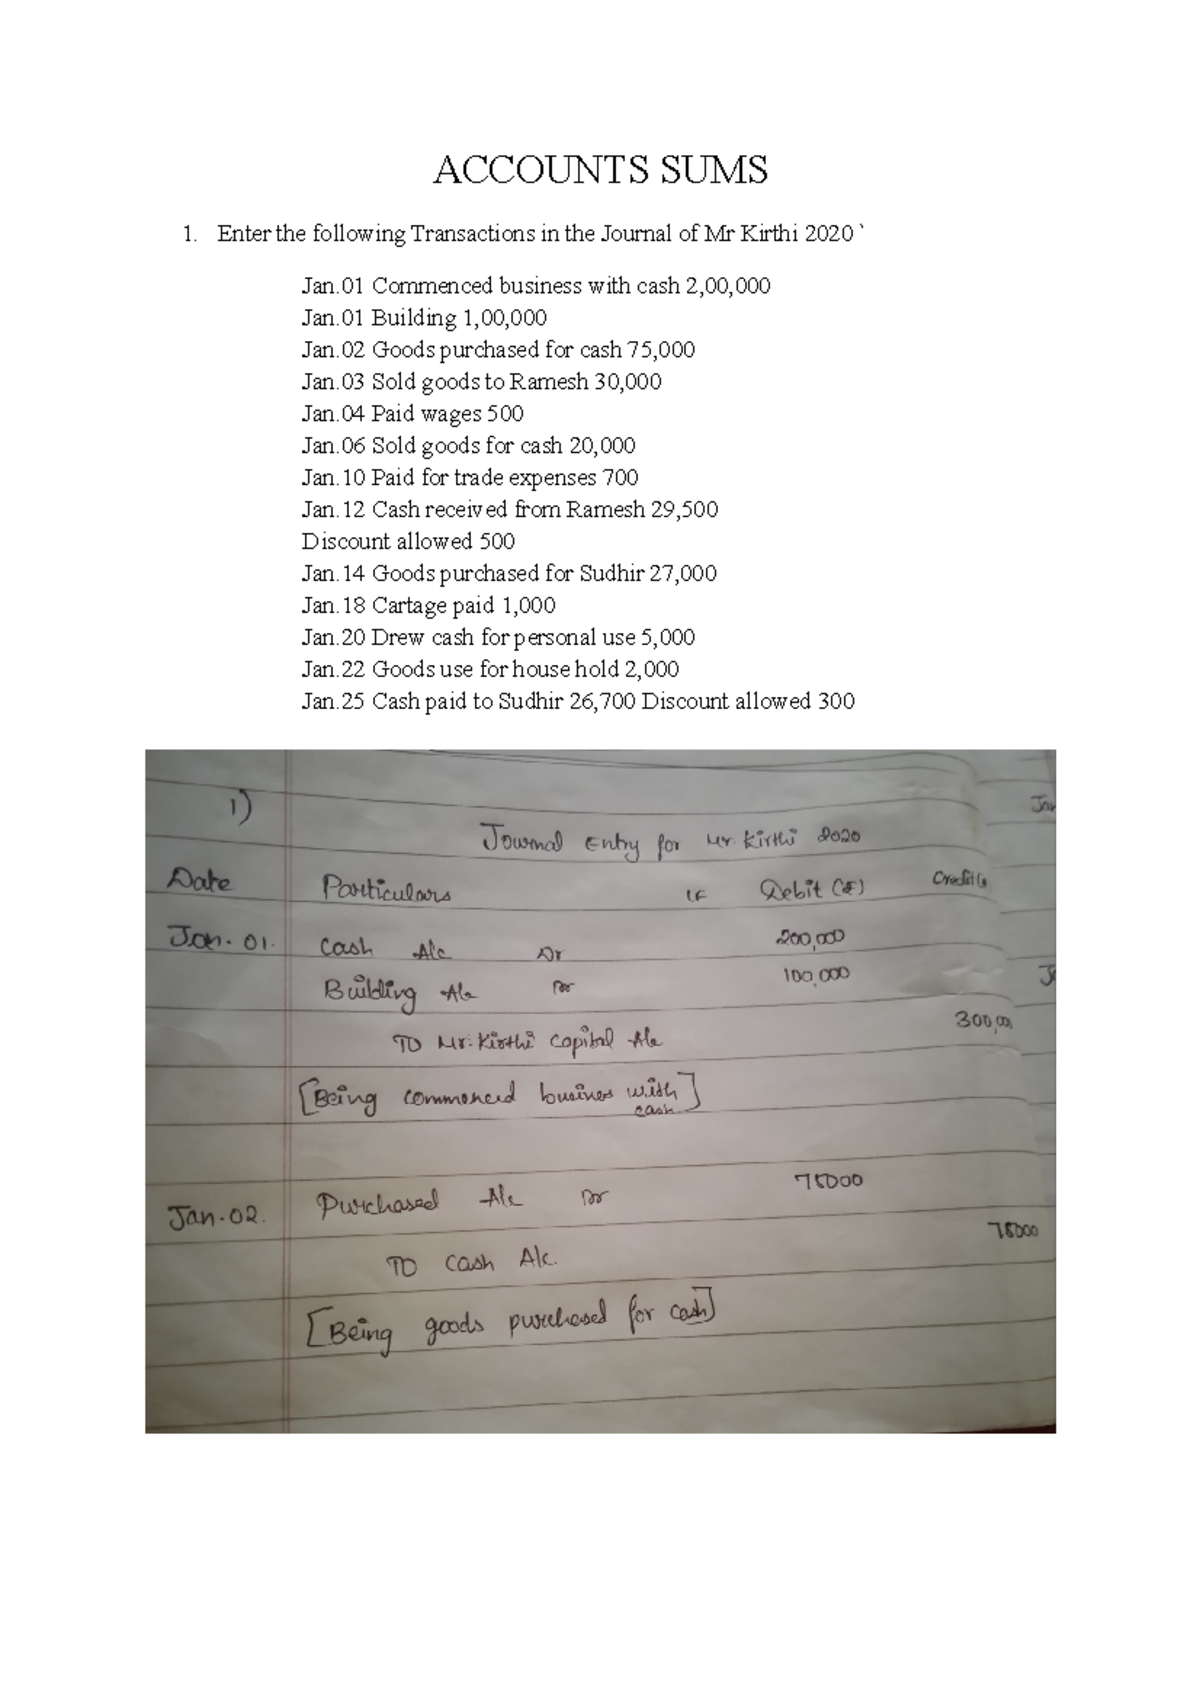 ACCOUNTS SUMS
1. Enter the following Transactions in the Journal of Mr Kirthi 2020 `
Jan.01 Commenced business with cash 2,00,000
Jan.01 Building 1,00,000
Jan.02 Goods purchased for cash 75,000
Jan.03 Sold goods to Ramesh 30,000
Jan.04 Paid wages 500
Jan.06 Sold goods for cash 20,000
Jan.10 Paid for trade expenses 700
Jan.12 Cash received from Ramesh 29,500
Discount allowed 500
Jan.14 Goods purchased for Sudhir 27,000
Jan.18 Cartage paid 1,000
Jan.20 Drew cash for personal use 5,000
Jan.22 Goods use for house hold 2,000
Jan.25 Cash paid to Sudhir 26,700 Discount allowed 300
1)
Journal Entry for Mr. Kirthi 2020
Date Particulars LF Debit (₹) Credit (
Jan. 01. Cash A/c Dr 200,000
Building A/c Dr 100,000
To Mr. Kirthi Capital A/c 300,00
[Being commenced business with
cash]
Jan.02. Purchased A/c Dr 75000
To cash A/c. 75000
[Being goods purchased for cash]